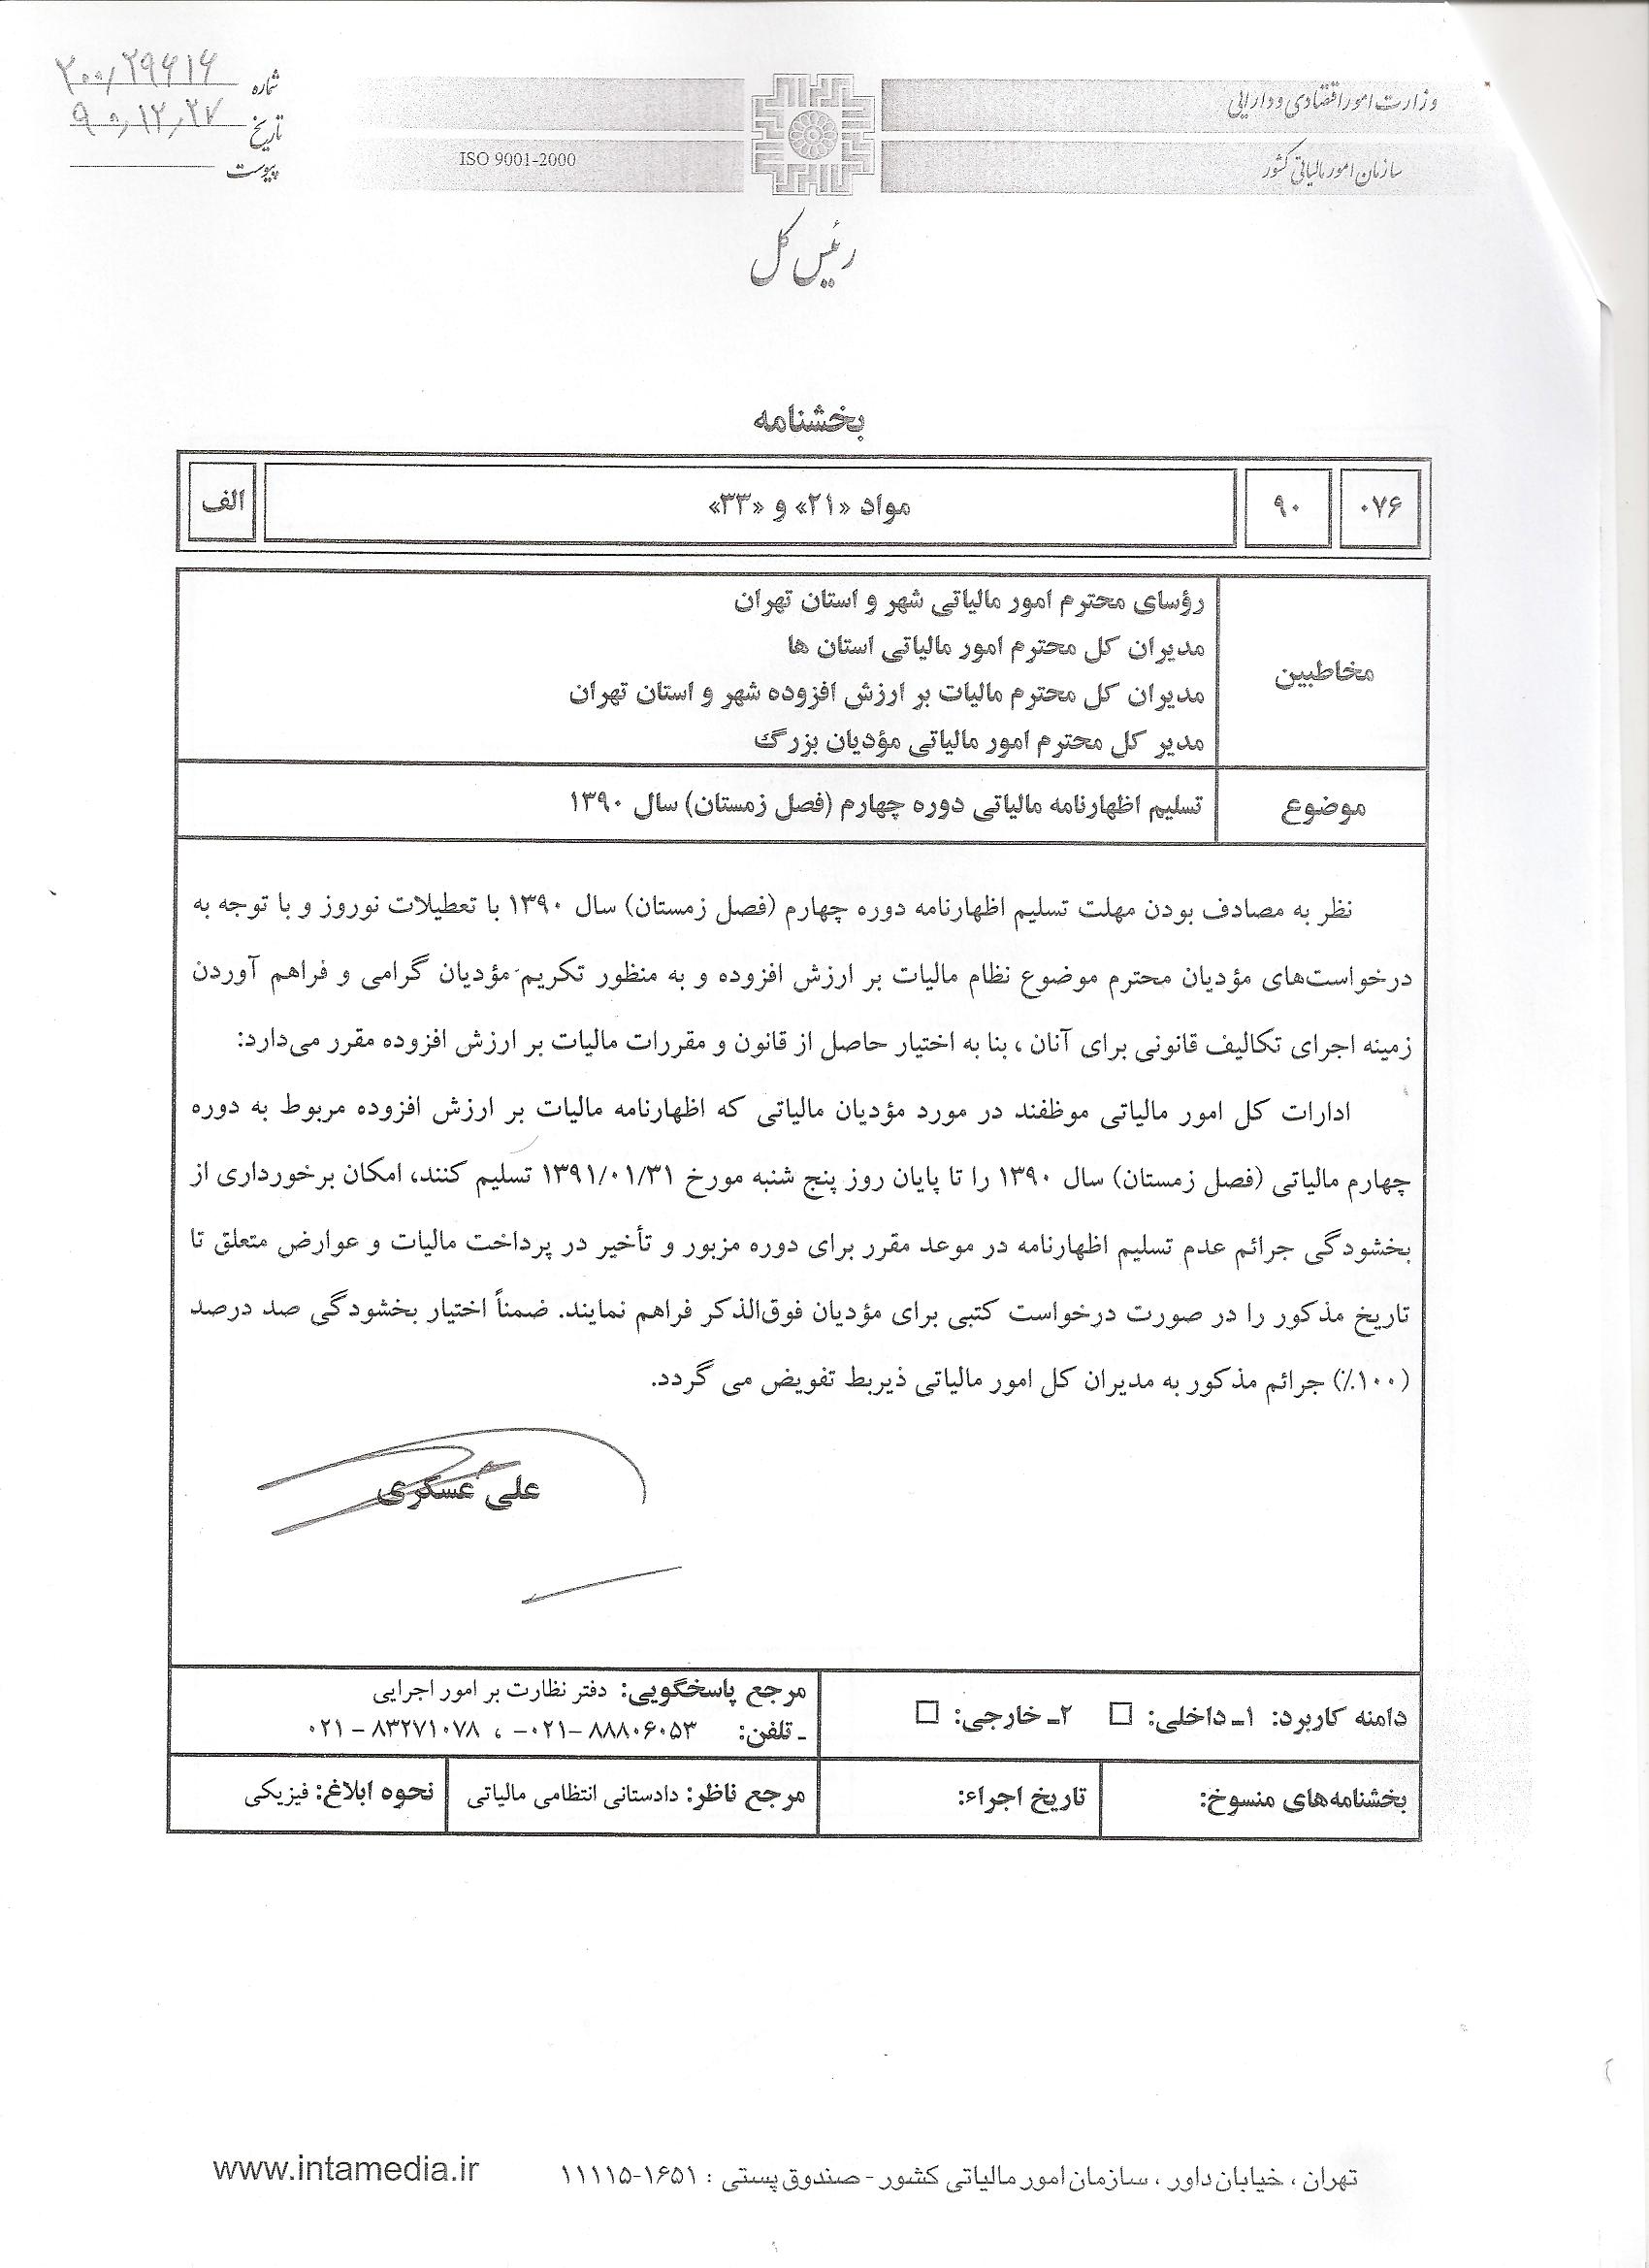 وزارت امور اقتصادی و دارایی
سازمان امور مالیاتی کشور
ISO 9001-2000
شماره ۲۰۰/۲۹۶۱۶
تاریخ ۹۰/۱۲/۲۷
پیوست
رئیس کل
بخشنامه
۰۷۶ ۹۰ مواد «۲۱» و «۳۳» الف
مخاطبین
رؤسای محترم امور مالیاتی شهر و استان تهران
مدیران کل محترم امور مالیاتی استان ها
مدیران کل محترم مالیات بر ارزش افزوده شهر و استان تهران
مدیر کل محترم امور مالیاتی مؤدیان بزرگ
موضوع تسلیم اظهارنامه مالیاتی دوره چهارم (فصل زمستان) سال ۱۳۹۰
نظر به مصادف بودن مهلت تسلیم اظهارنامه دوره چهارم (فصل زمستان) سال ۱۳۹۰ با تعطیلات نوروز و با توجه به
درخواست‌های مؤدیان محترم موضوع نظام مالیات بر ارزش افزوده و به منظور تکریم مؤدیان گرامی و فراهم آوردن
زمینه اجرای تکالیف قانونی برای آنان ، بنا به اختیار حاصل از قانون و مقررات مالیات بر ارزش افزوده مقرر می‌دارد:
ادارات کل امور مالیاتی موظفند در مورد مؤدیان مالیاتی که اظهارنامه مالیات بر ارزش افزوده مربوط به دوره
چهارم مالیاتی (فصل زمستان) سال ۱۳۹۰ را تا پایان روز پنج شنبه مورخ ۱۳۹۱/۰۱/۳۱ تسلیم کنند، امکان برخورداری از
بخشودگی جرائم عدم تسلیم اظهارنامه در موعد مقرر برای دوره مزبور و تأخیر در پرداخت مالیات و عوارض متعلق تا
تاریخ مذکور را در صورت درخواست کتبی برای مؤدیان فوق‌الذکر فراهم نمایند. ضمناً اختیار بخشودگی صد درصد
(۱۰۰٪) جرائم مذکور به مدیران کل امور مالیاتی ذیربط تفویض می گردد.
علی عسکری
دامنه کاربرد: ۱ـ داخلی: □ ۲ـ خارجی: □
مرجع پاسخگویی: دفتر نظارت بر امور اجرایی
ـ تلفن: ۸۸۸۰۶۰۵۳ –۰۲۱– ، ۸۳۲۷۱۰۷۸ – ۰۲۱
بخشنامه‌های منسوخ: تاریخ اجراء: مرجع ناظر: دادستانی انتظامی مالیاتی نحوه ابلاغ: فیزیکی
تهران ، خیابان داور ، سازمان امور مالیاتی کشور - صندوق پستی : ۱۶۵۱-۱۱۱۱۵
www.intamedia.ir